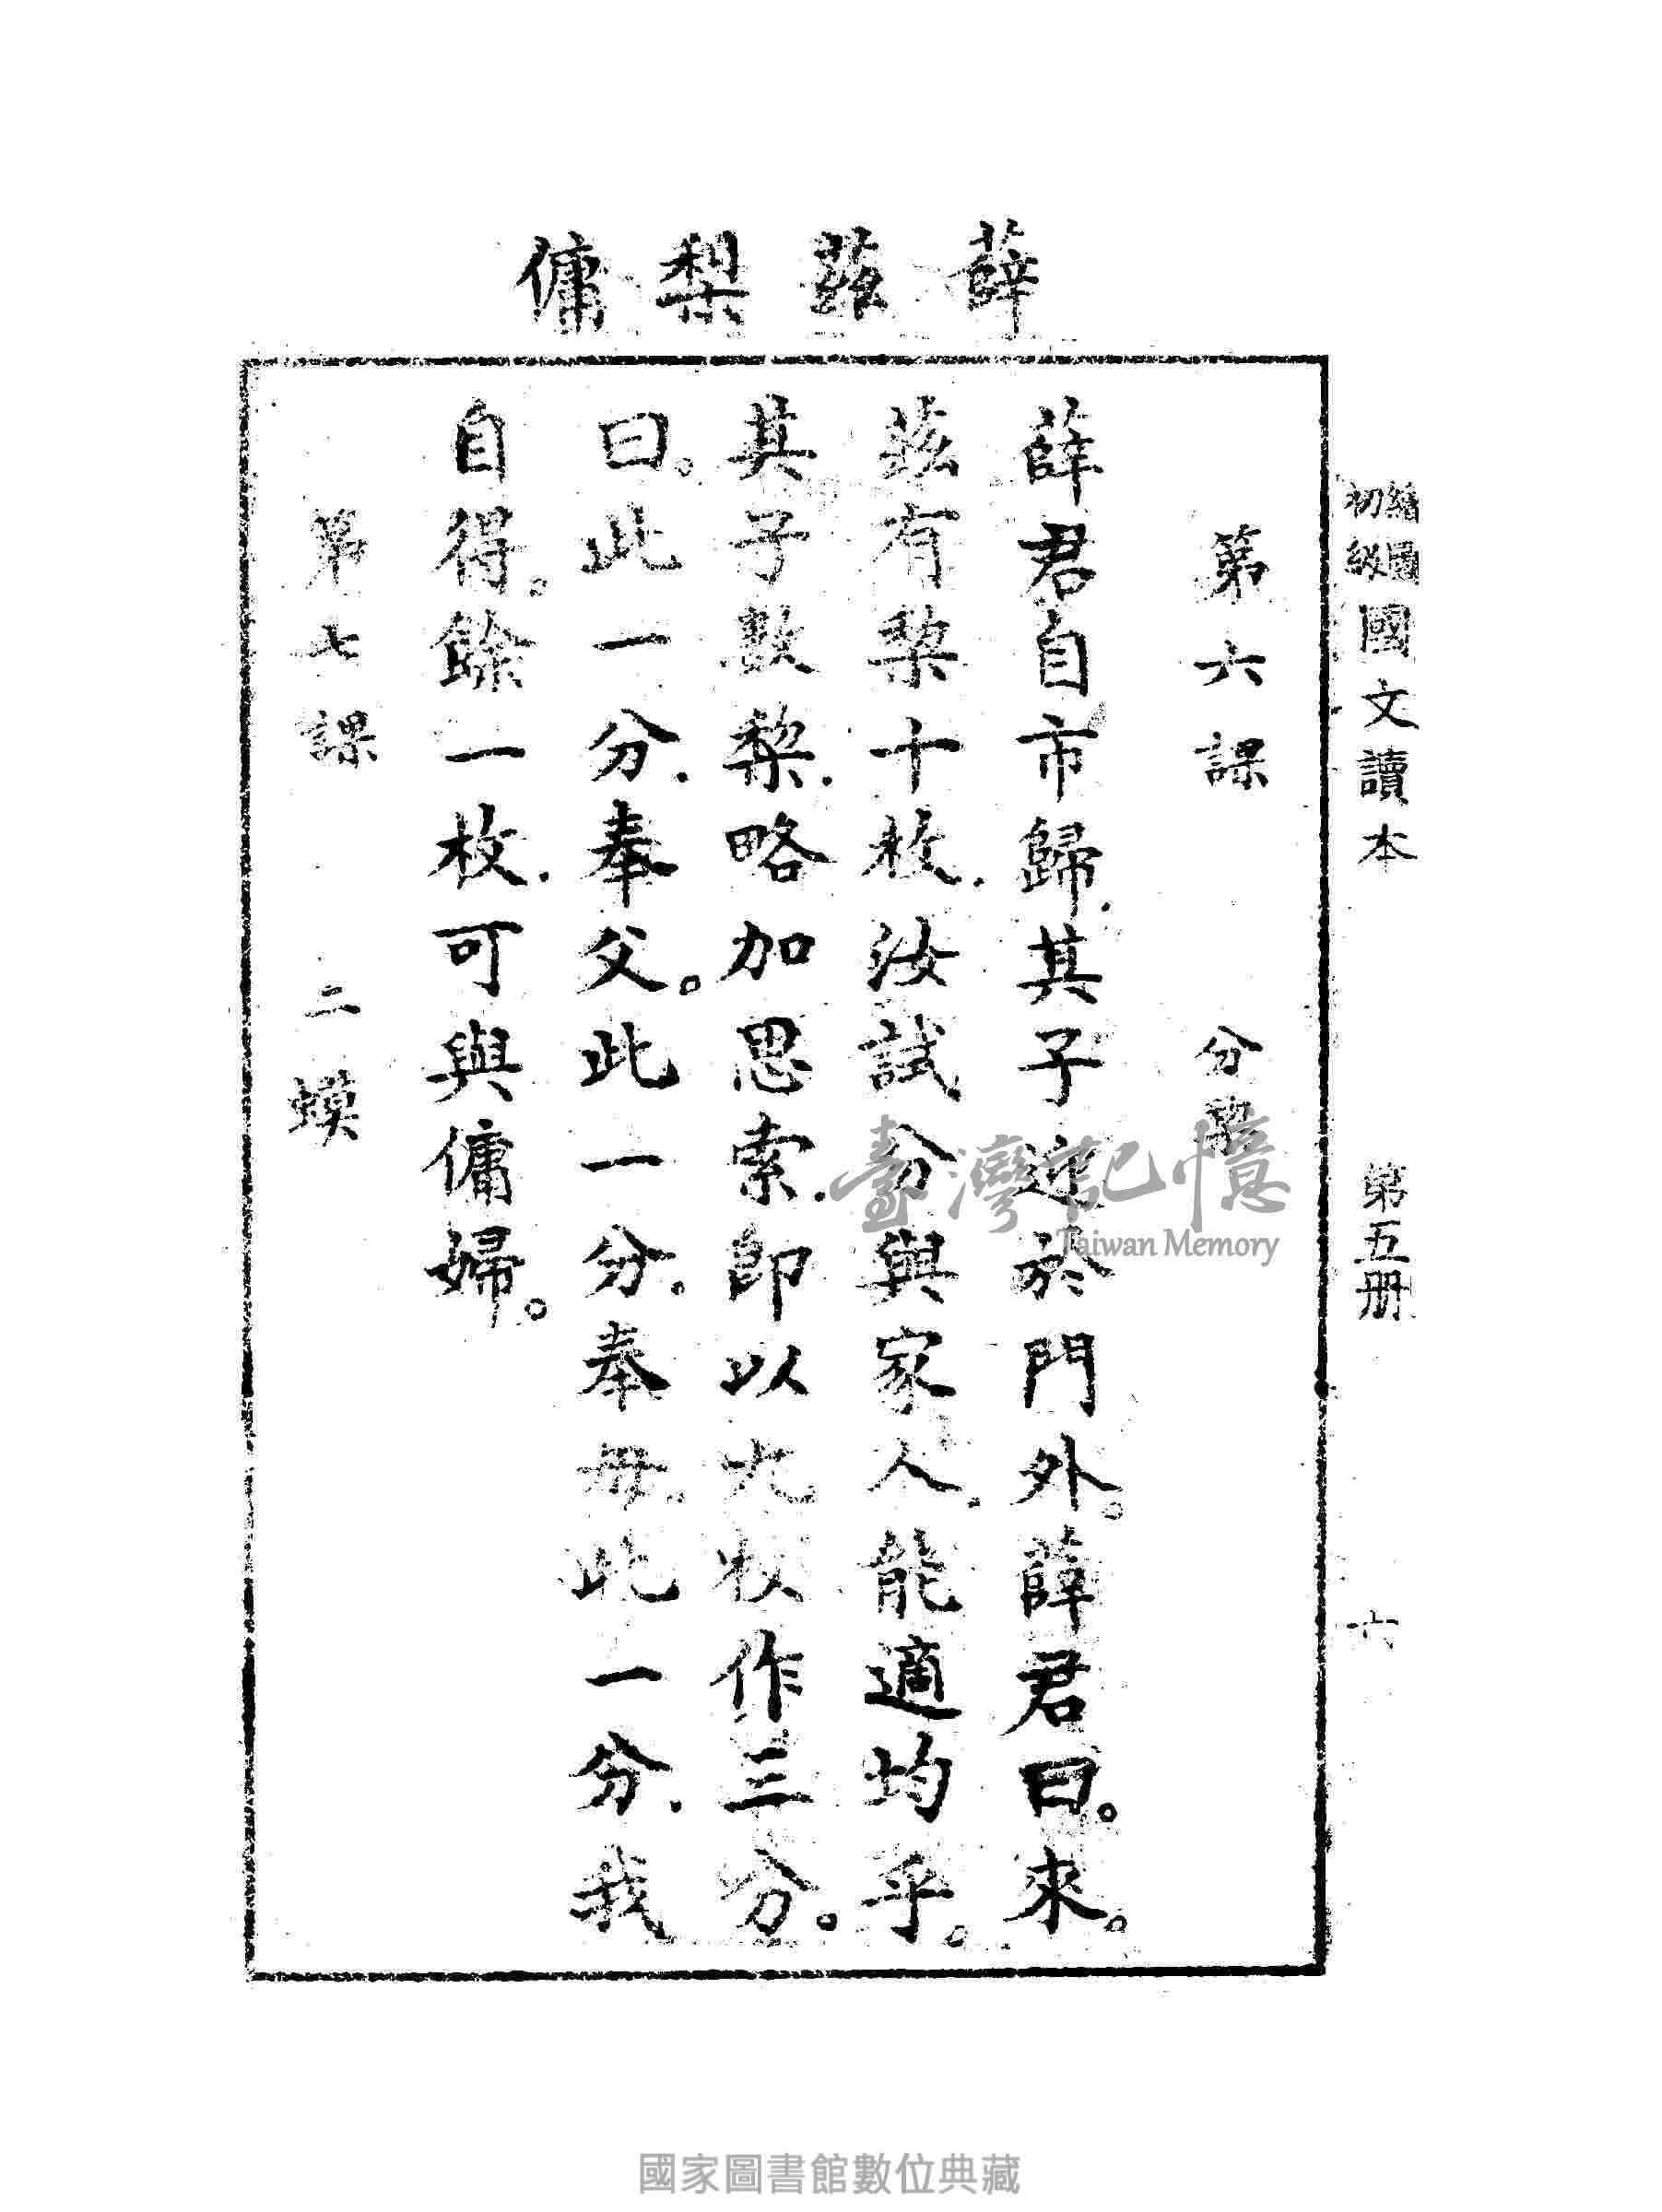 薛茲梨傭
繪圖初級國文讀本 第五册 六
第六課 分梨
薛君自市歸.其子迎於門外。薛君曰。來。
茲有梨十枚.汝試分與家人.能適均乎。
其子數梨.略加思索.即以九枚作三分。
曰。此一分.奉父。此一分.奉母.此一分.我
自得。餘一枚.可與傭婦。
第七課 二蟆
臺灣記憶
Taiwan Memory
國家圖書館數位典藏